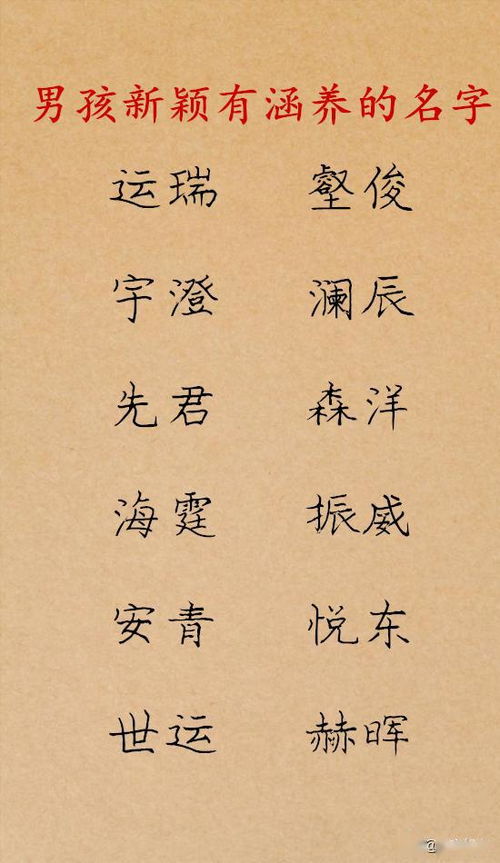 男孩新颖有涵养的名字
运瑞 壑俊
宇澄 澜辰
先君 森洋
海霆 振威
安青 悦东
世运 赫晖